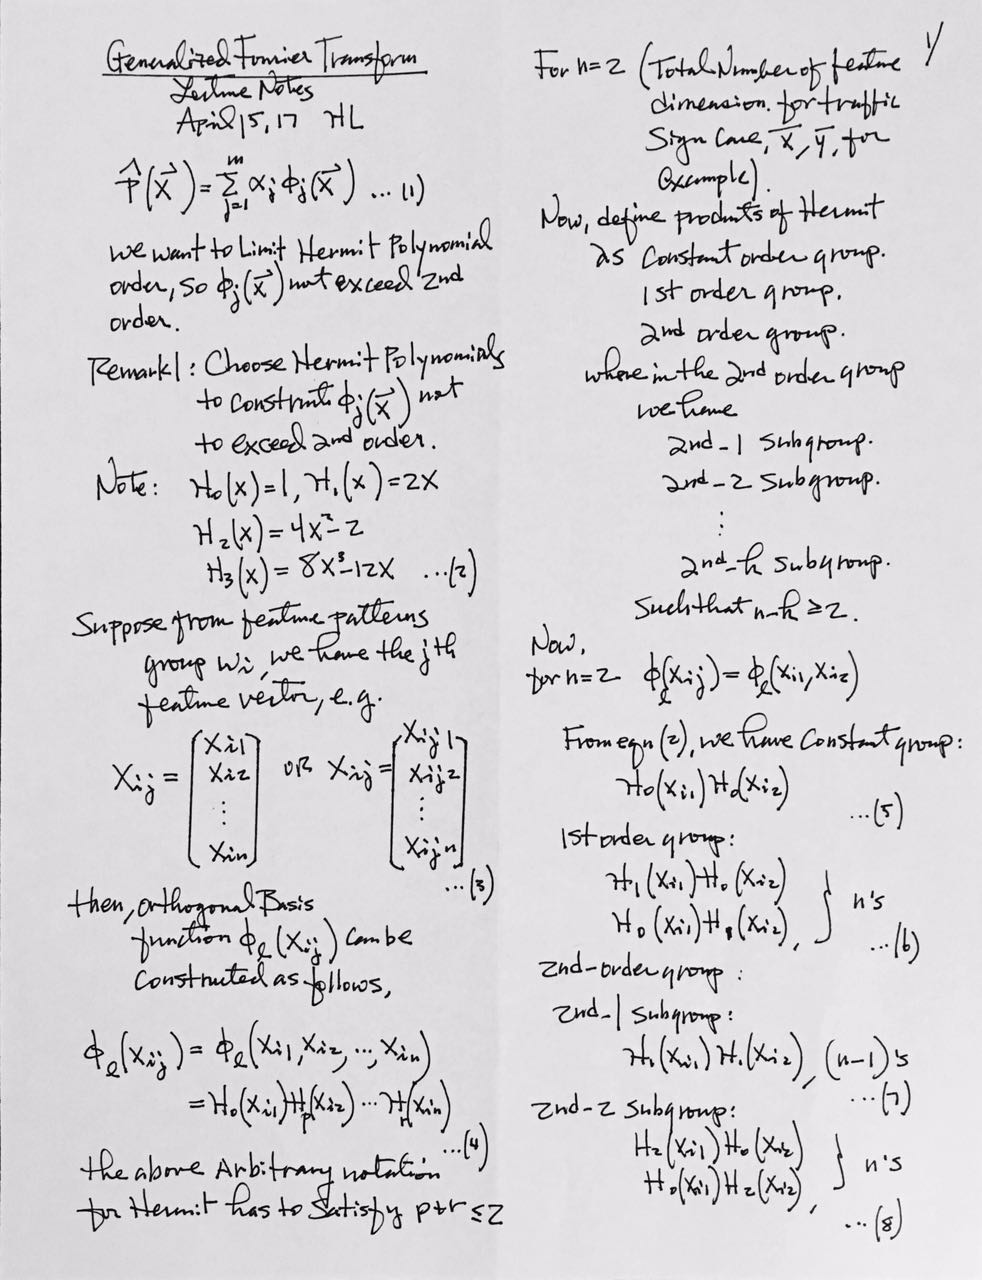 Generalized Fourier Transform
Lecture Notes
April 15, 17 HL
P̂(x⃗) = Σ_{j=1}^{m} αⱼ ϕⱼ(x⃗) ... (1)
we want to Limit Hermit Polynomial
order, so ϕⱼ(x⃗) not exceed 2nd
order.
Remark 1: Choose Hermit Polynomials
to construct ϕⱼ(x⃗) not
to exceed 2nd order.
Note: H₀(x) = 1, H₁(x) = 2x
H₂(x) = 4x² - 2
H₃(x) = 8x³ - 12x ... (2)
Suppose from feature patterns
group wi, we have the jth
feature vector, e.g.
Xij = [Xi1 Xi2 ⋮ Xin] OR Xij = [Xij1 Xij2 ⋮ Xijn]
... (3)
then, orthogonal Basis
function ϕℓ(Xij) can be
Constructed as follows,
ϕℓ(Xij) = ϕℓ(Xi1, Xi2, ..., Xin)
= H₀(Xi1) Hp(Xi2) ... Hr(Xin)
... (4)
the above Arbitrary notation
for Hermit has to Satisfy p+r ≤ 2
1/
For n=2 (Total Number of feature
dimension. for traffic
Sign Case, x̄, ȳ, for
example).
Now, define products of Hermit
as Constant order group.
1st order group.
2nd order group.
where in the 2nd order group
we have
2nd-1 Subgroup.
2nd-2 Subgroup.
⋮
2nd-k subgroup.
Such that n-k ≥ 2.
Now,
for n=2 ϕℓ(Xij) = ϕℓ(Xi1, Xi2)
From eqn (2), we have Constant group:
H₀(Xi1) H₀(Xi2)
... (5)
1st order group:
H₁(Xi1) H₀(Xi2)
H₀(Xi1) H₁(Xi2), } n's
... (6)
2nd-order group:
2nd-1 Subgroup:
H₁(Xi1) H₁(Xi2), (n-1)'s
... (7)
2nd-2 Subgroup:
H₂(Xi1) H₀(Xi2)
H₀(Xi1) H₂(Xi2), } n's
... (8)